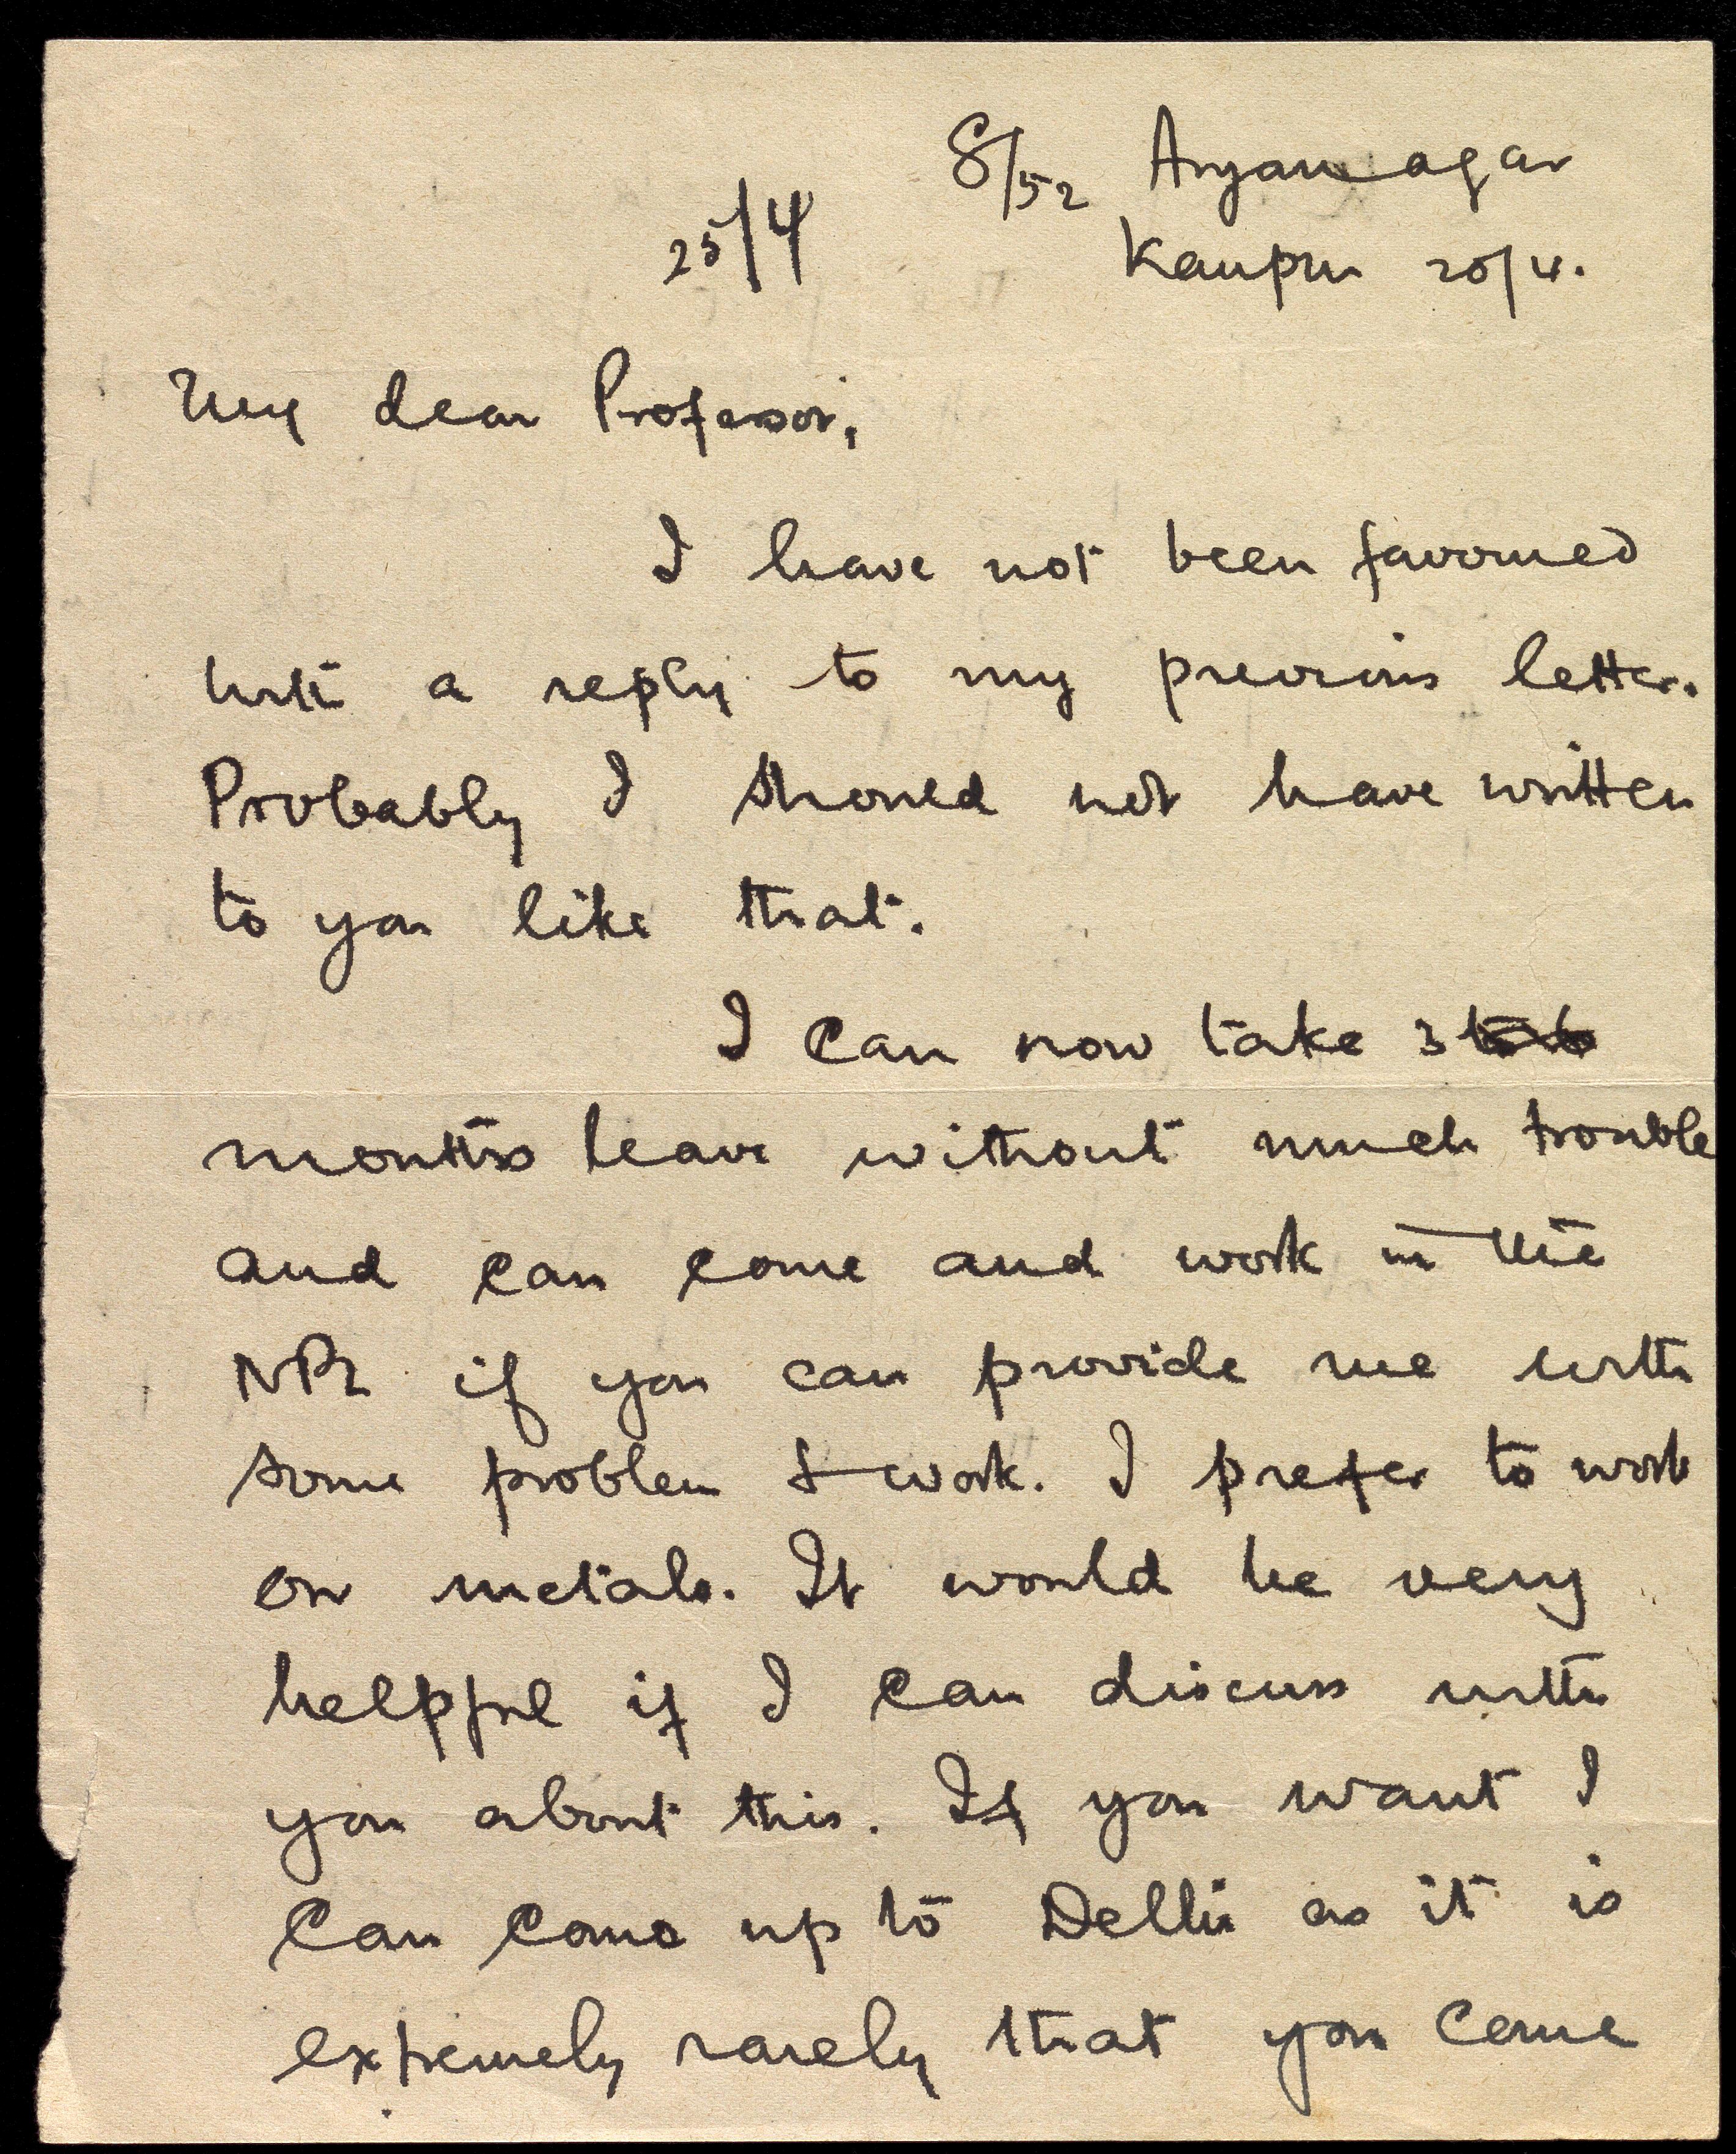 8/52 Aryanagar
25/4
Kanpur 20/4.
My dear Professor,
I have not been favoured
with a reply to my previous letter.
Probably I should not have written
to you like that.
I can now take 3 to 6
months leave without much trouble
and can come and work in the
NPL if you can provide me with
some problem & work. I prefer to work
on metals. It would be very
helpful if I can discuss with
you about this. If you want I
can come up to Delhi as it is
extremely rarely that you come